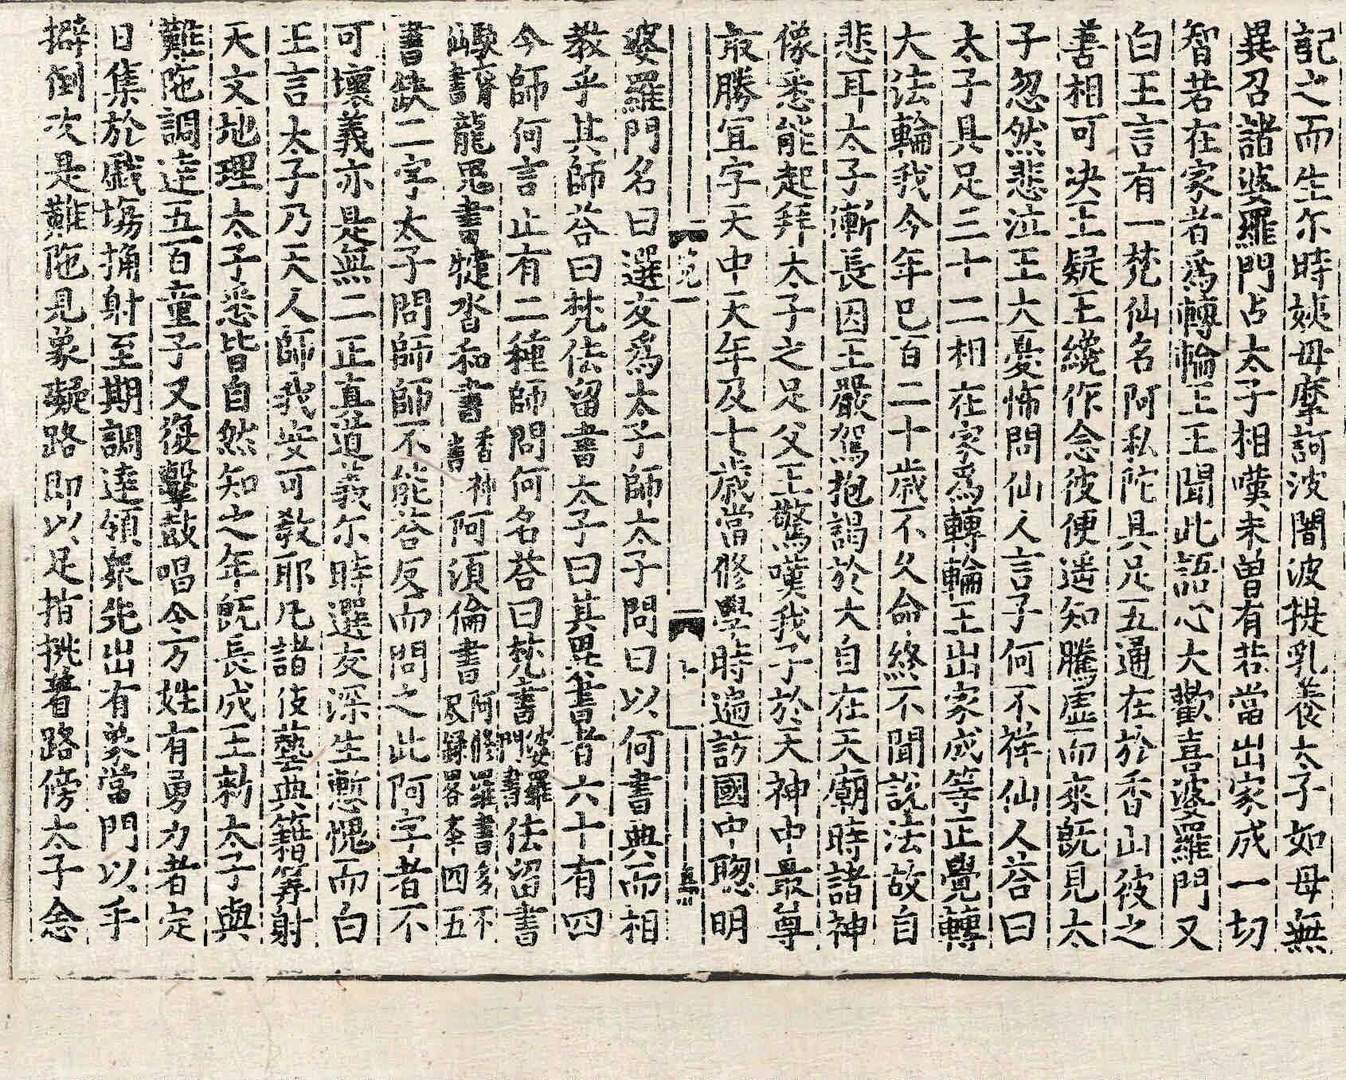 記之而生尓時姨母摩訶波闍波提乳養太子如母無
異召諸婆羅門占太子相嘆未曾有若當出家成一切
智若在家者爲轉輪王王聞此語心大歡喜婆羅門又
白王言有一梵仙名阿私陀具足五通在於香山彼之
善相可决王疑王纔作念彼便遥知騰虛而來旣見太
子忽然悲泣王大憂怖問仙人言子何不祥仙人荅曰
太子具足三十二相在家爲轉輪王出家成等正覺轉
大法輪我今年已百二十歲不久命終不聞説法故自
悲耳太子漸長因王嚴駕抱謁於大自在天廟時諸神
像悉能起拜太子之足父王驚嘆我子於天神中最尊
㝡勝冝字天中天年及七歲當修學時遍訪國中聰明
婆羅門名曰選友爲太子師太子問曰以何書典而相
教乎其師荅曰梵佉留書太子曰其異書者六十有四
今師何言止有二種師問何名荅曰梵書婆羅門書佉留書
龍鬼書揵沓和書香神書阿須倫書阿修羅書多不
書缺二字太子問師師不能荅反而問之此阿字者不
可壞義亦是無二正眞道義尓時選友深生慙愧而白
王言太子乃天人師我安可教耶凡諸伎藝典籍筭射
天文地理太子悉皆自然知之年旣長成王勑太子與
難陁調達五百童子又復擊鼓唱令万姓有勇力者定
日集於戲塲捔射至期調達領衆先出有象當門以手
擗倒次是難陁見象礙路即以足指挑著路傍太子念